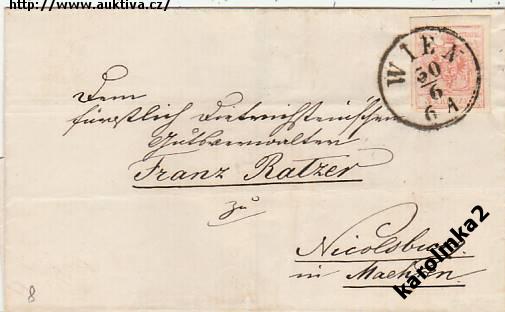 http://www.auktiva.cz/
WIEN
30
6
6 A
Dem
fürstlich Dietrichstein'schen
Gutsverwalter
Franz Ratzer
zu
Nicolsburg
in Maehren.
karolinka2
8